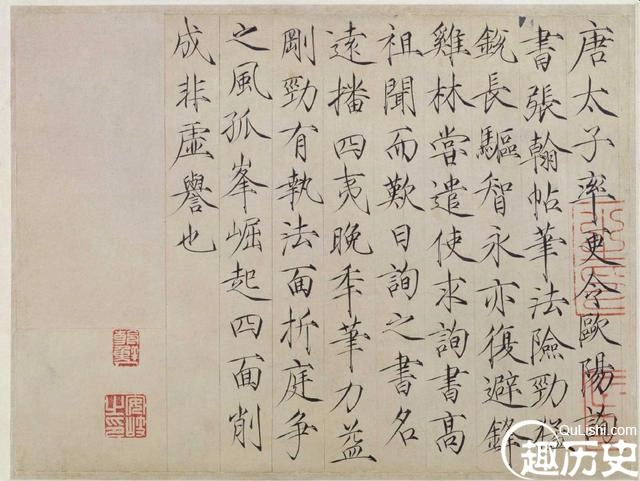 唐太子率更令歐陽詢
書張翰帖筆法險勁猛
銳長驅智永亦復避鋒
雞林當遣使求詢書高
祖聞而歎曰詢之書名
遠播四夷晚年筆力益
剛勁有執法面折庭爭
之風孤峯崛起四面削
成非虛譽也
QuLishi.com
趣历史